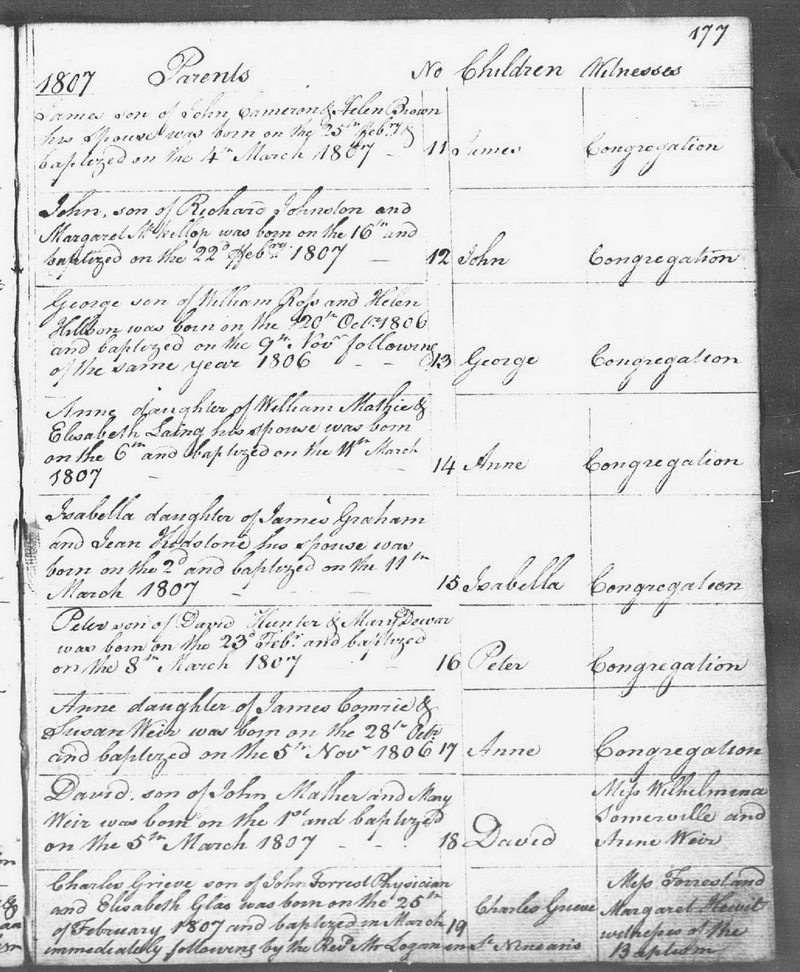 177
1807 Parents No Children Witnesses
James son of John Cameron & Helen Brown
his spouse was born on the 25th Febry &
baptized on the 4th March 1807 - 11 James Congregation
John, son of Richard Johnston and
Margaret McKillop was born on the 16th and
baptized on the 22d Febry 1807 — 12 John Congregation
George son of William Ross and Helen
was born on the 20th Octr 1806
and baptized on the 9th Novr following
of the same year 1806 - - 13 George Congregation
Anne daughter of William Mathie &
Elisabeth Laing his spouse was born
on the 6th and baptized on the 11th March
1807 - - 14 Anne Congregation
Isabella daughter of James Graham
and Jean Kidstone his spouse was
born on the 2d and baptized on the 11th
March 1807 - - 15 Isabella Congregation
Peter son of David Hunter & Mary Dewar
was born on the 23d Febr and baptized
on the 8th March 1807 - - 16 Peter Congregation
Anne daughter of James Comrie &
Susan Weir was born on the 28th Octr
and baptized on the 5th Novr 1806 17 Anne Congregation
David, son of John Mather and Mary Miss Wilhelmina
Weir was born on the 1st and baptized Somerville and
on the 5th March 1807 - - 18 David Anne Weir
Charles Grieve son of John Forrest Physician Miss Forrest and
and Elisabeth Glas was born on the 25th Charles Grieve Margaret Hewit
of February 1807 and baptized in March 19 witnesses of the
immediately following by the Revd Mr Logan in St Ninians Baptism